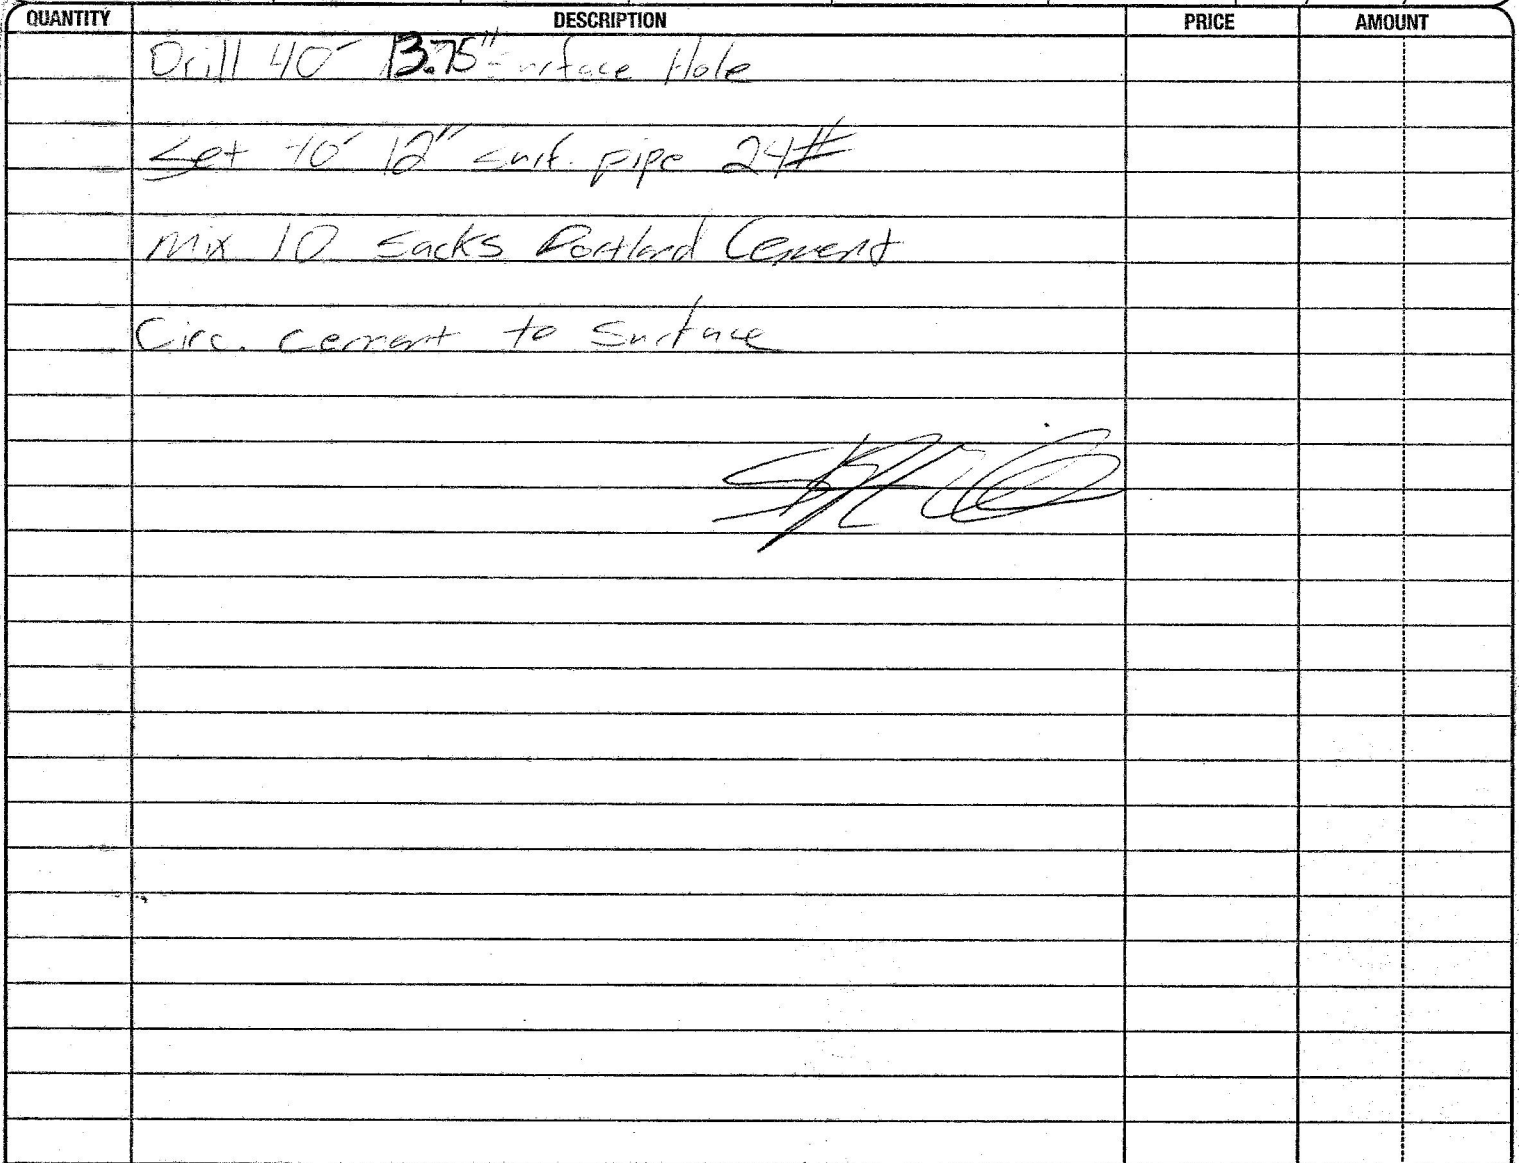 QUANTITY DESCRIPTION PRICE AMOUNT
Drill 40' 13.75" Surface Hole
Set 40' 12" surf. pipe 24#
Mix 10 sacks Portland Cement
Circ. cement to surface